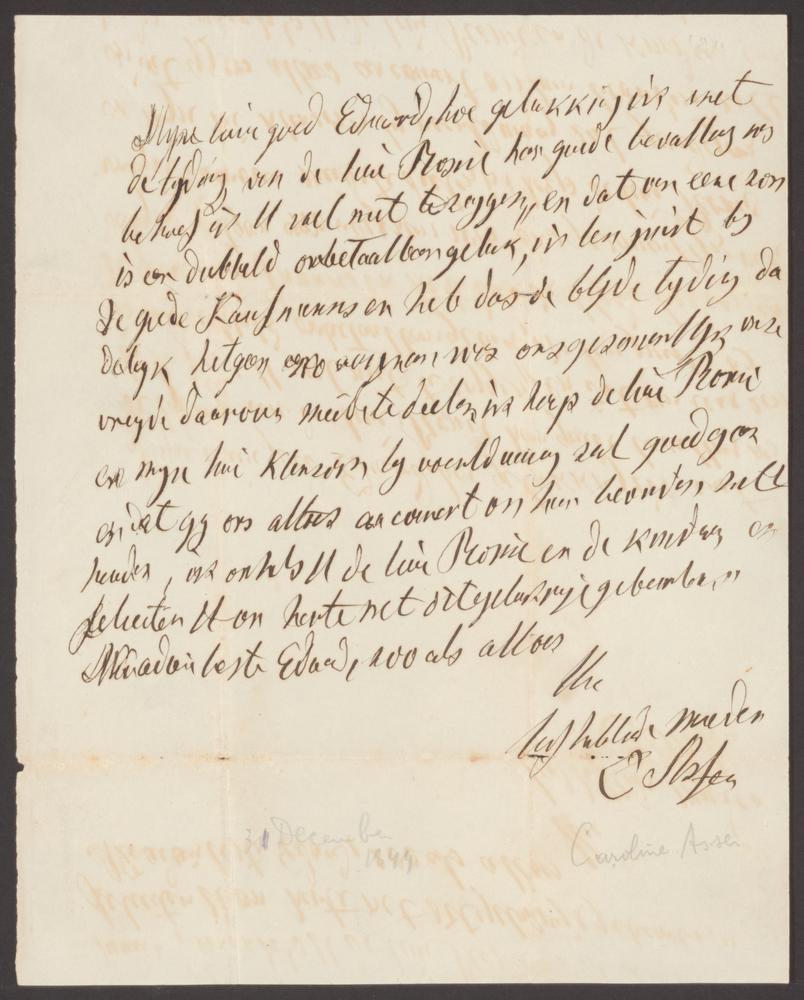 Myne lieve goed Eduard, hoe gelukkig ik met
de tyding van de lieve Rosie haar goede bevalling was
behoef ik U wel niet te zeggen, en dat van eene zoon
is een dubbeld onbetaalbaar geluk, ik ben juist by
de goede Kaufmanns en heb dus de blyde tyding da
delyk hetgeen was ons gezamentlyk onze
vreugde daarover meede te deelen, ik hoop de lieve Rosie
en myn lieve kleinzoon by voortduuring zal goed gaan
en dat gy ons altoos au courant van hun bevinden zult
houden, ik omhels U de lieve Rosie en de kinderen en
feliciteer U van harte met dit gelukkige gebeurten
Adieu beste Eduard, zoo als altoos
Uw
liefhebbende moeder
C Asser
31 December
1844
Caroline Asser